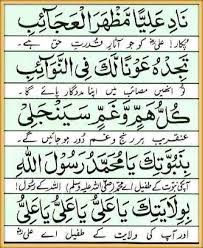 نَادِ عَلِيًّا مَظْهَرَ الْعَجَائِبِ
پکارو علیؓ کو جو آثارِ قدرتِ حق ہے۔
تَجِدْهُ عَوْنًا لَكَ فِي النَّوَائِبِ
تو انھیں مصائب میں اپنا مددگار پائے گا۔
كُلُّ هَمٍّ وَّغَمٍّ سَيَنْجَلِيْ
عنقریب ہر رنج و غم دور ہو جائیں گے۔
بِنُبُوَّتِكَ يَا مُحَمَّدُ رَسُوْلَ اللهِ
آپکی نبوت کے طفیل اے محمد (صلی اللہ علیہ وسلم) اللہ کے رسول!
بِوِلَايَتِكَ يَا عَلِيُّ يَا عَلِيُّ يَا عَلِيُّ
اور آپ کی ولایت کے طفیل اے علی